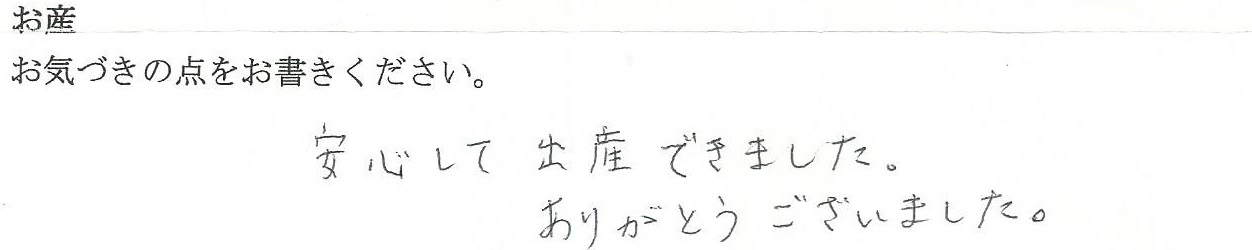 お産
お気づきの点をお書きください。
安心して出産できました。
ありがとうございました。